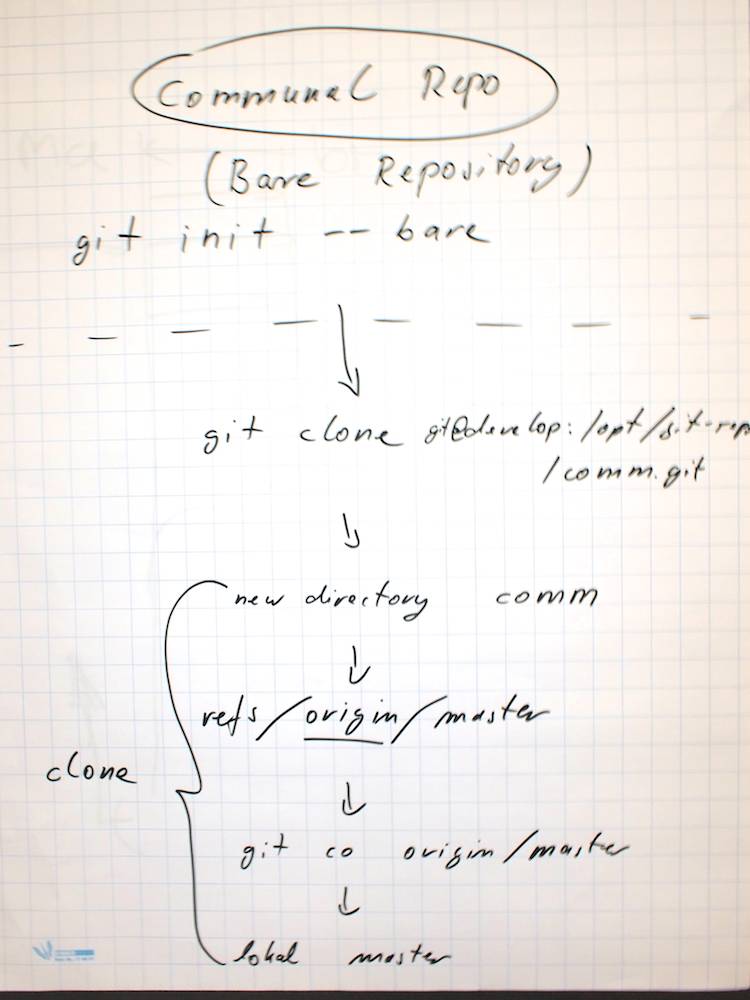 Communal Repo
(Bare Repository)
git init -- bare
git clone git@develop:/opt/git-rep
/comm.git
new directory comm
refs/origin/master
clone
git co origin/master
lokal master